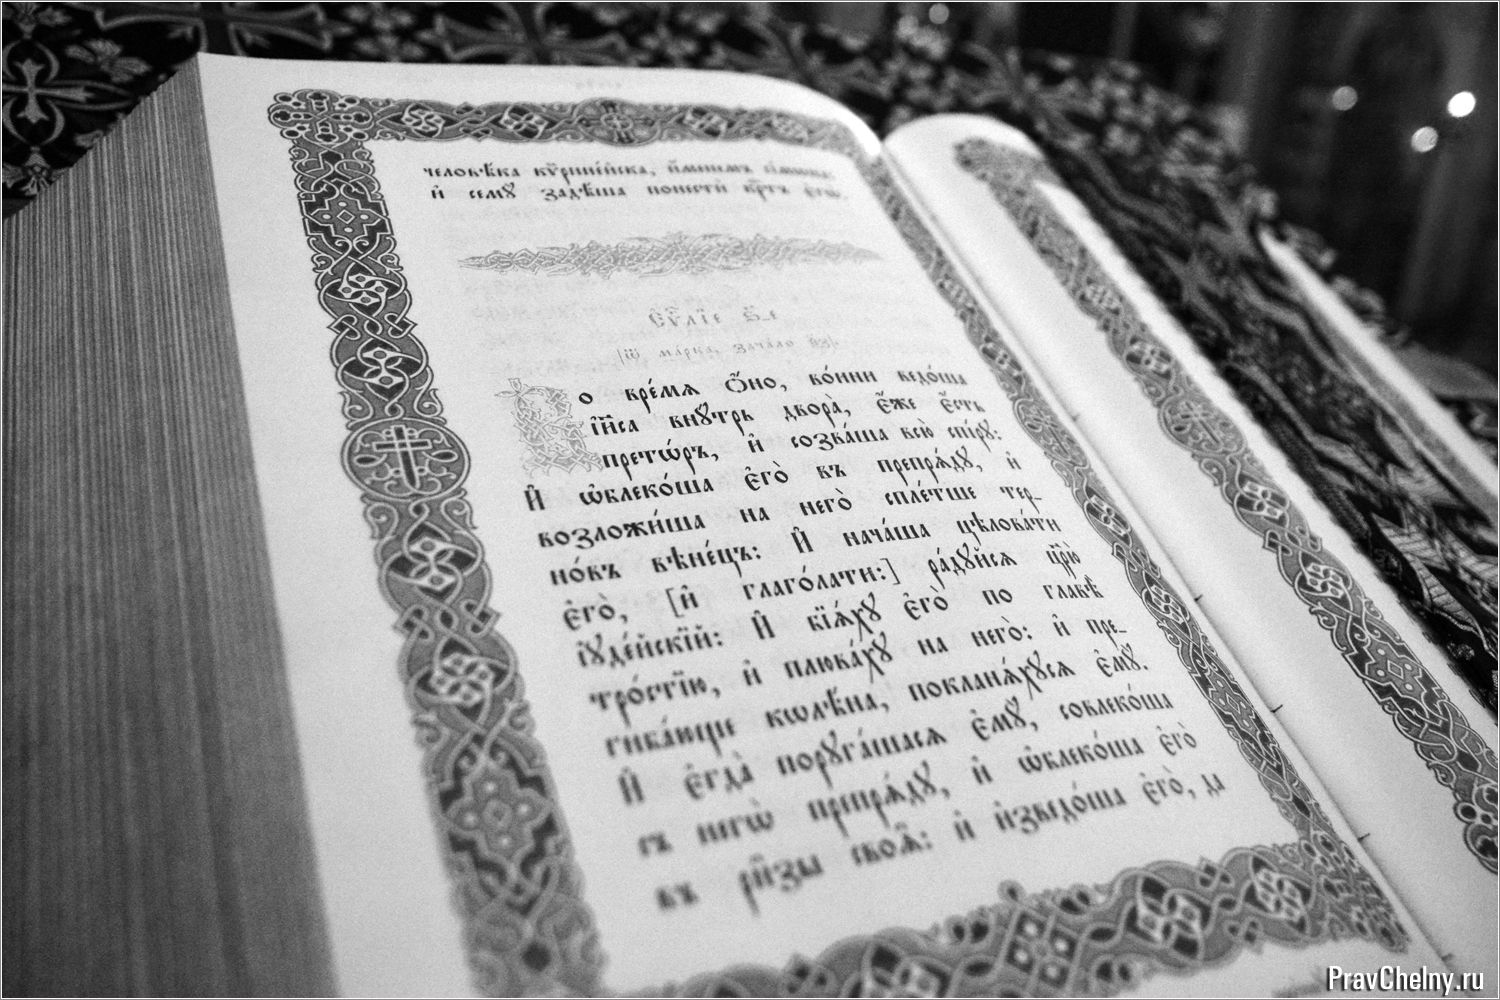 человѣ́ка кѷрине́йска, и҆́менемъ сі́мѡна:
и҆ семꙋ̀ задѣ́ша понестѝ крⷭ҇тъ є҆гѡ̀.
Є҆ѵⷢ҇лїе
[Ѿ ма́рка, зача́ло
Во вре́мѧ ѻ҆́но, во́ини ведо́ша
і҆и҃са внꙋ́трь двора̀, є҆́же є҆́сть
прето́ръ, и҆ созва́ша всю̀ спі́рꙋ:
И҆ ѡ҆блеко́ша є҆го̀ въ препрѧ́дꙋ, и҆
возложи́ша на него̀ спле́тше тер-
но́въ вѣне́цъ: И҆ нача́ша цѣлова́ти
є҆го̀, [и҆ глаго́лати:] ра́дꙋйсѧ цр҃ю̀
і҆ꙋде́йскїй: И҆ бїѧ́хꙋ є҆го̀ по главѣ̀
тро́стїю, и҆ плюва́хꙋ на него̀: и҆ пре-
гиба́юще кѡлѣ́на, поклонѧ́хꙋсѧ є҆мꙋ̀.
И҆ є҆гда̀ порꙋга́шасѧ є҆мꙋ̀, совлеко́ша
съ негѡ̀ препрѧ́дꙋ, и҆ ѡ҆блеко́ша є҆го̀
въ ри̑зы своѧ̑: и҆ и҆зведо́ша є҆го̀, да
PravChelny.ru